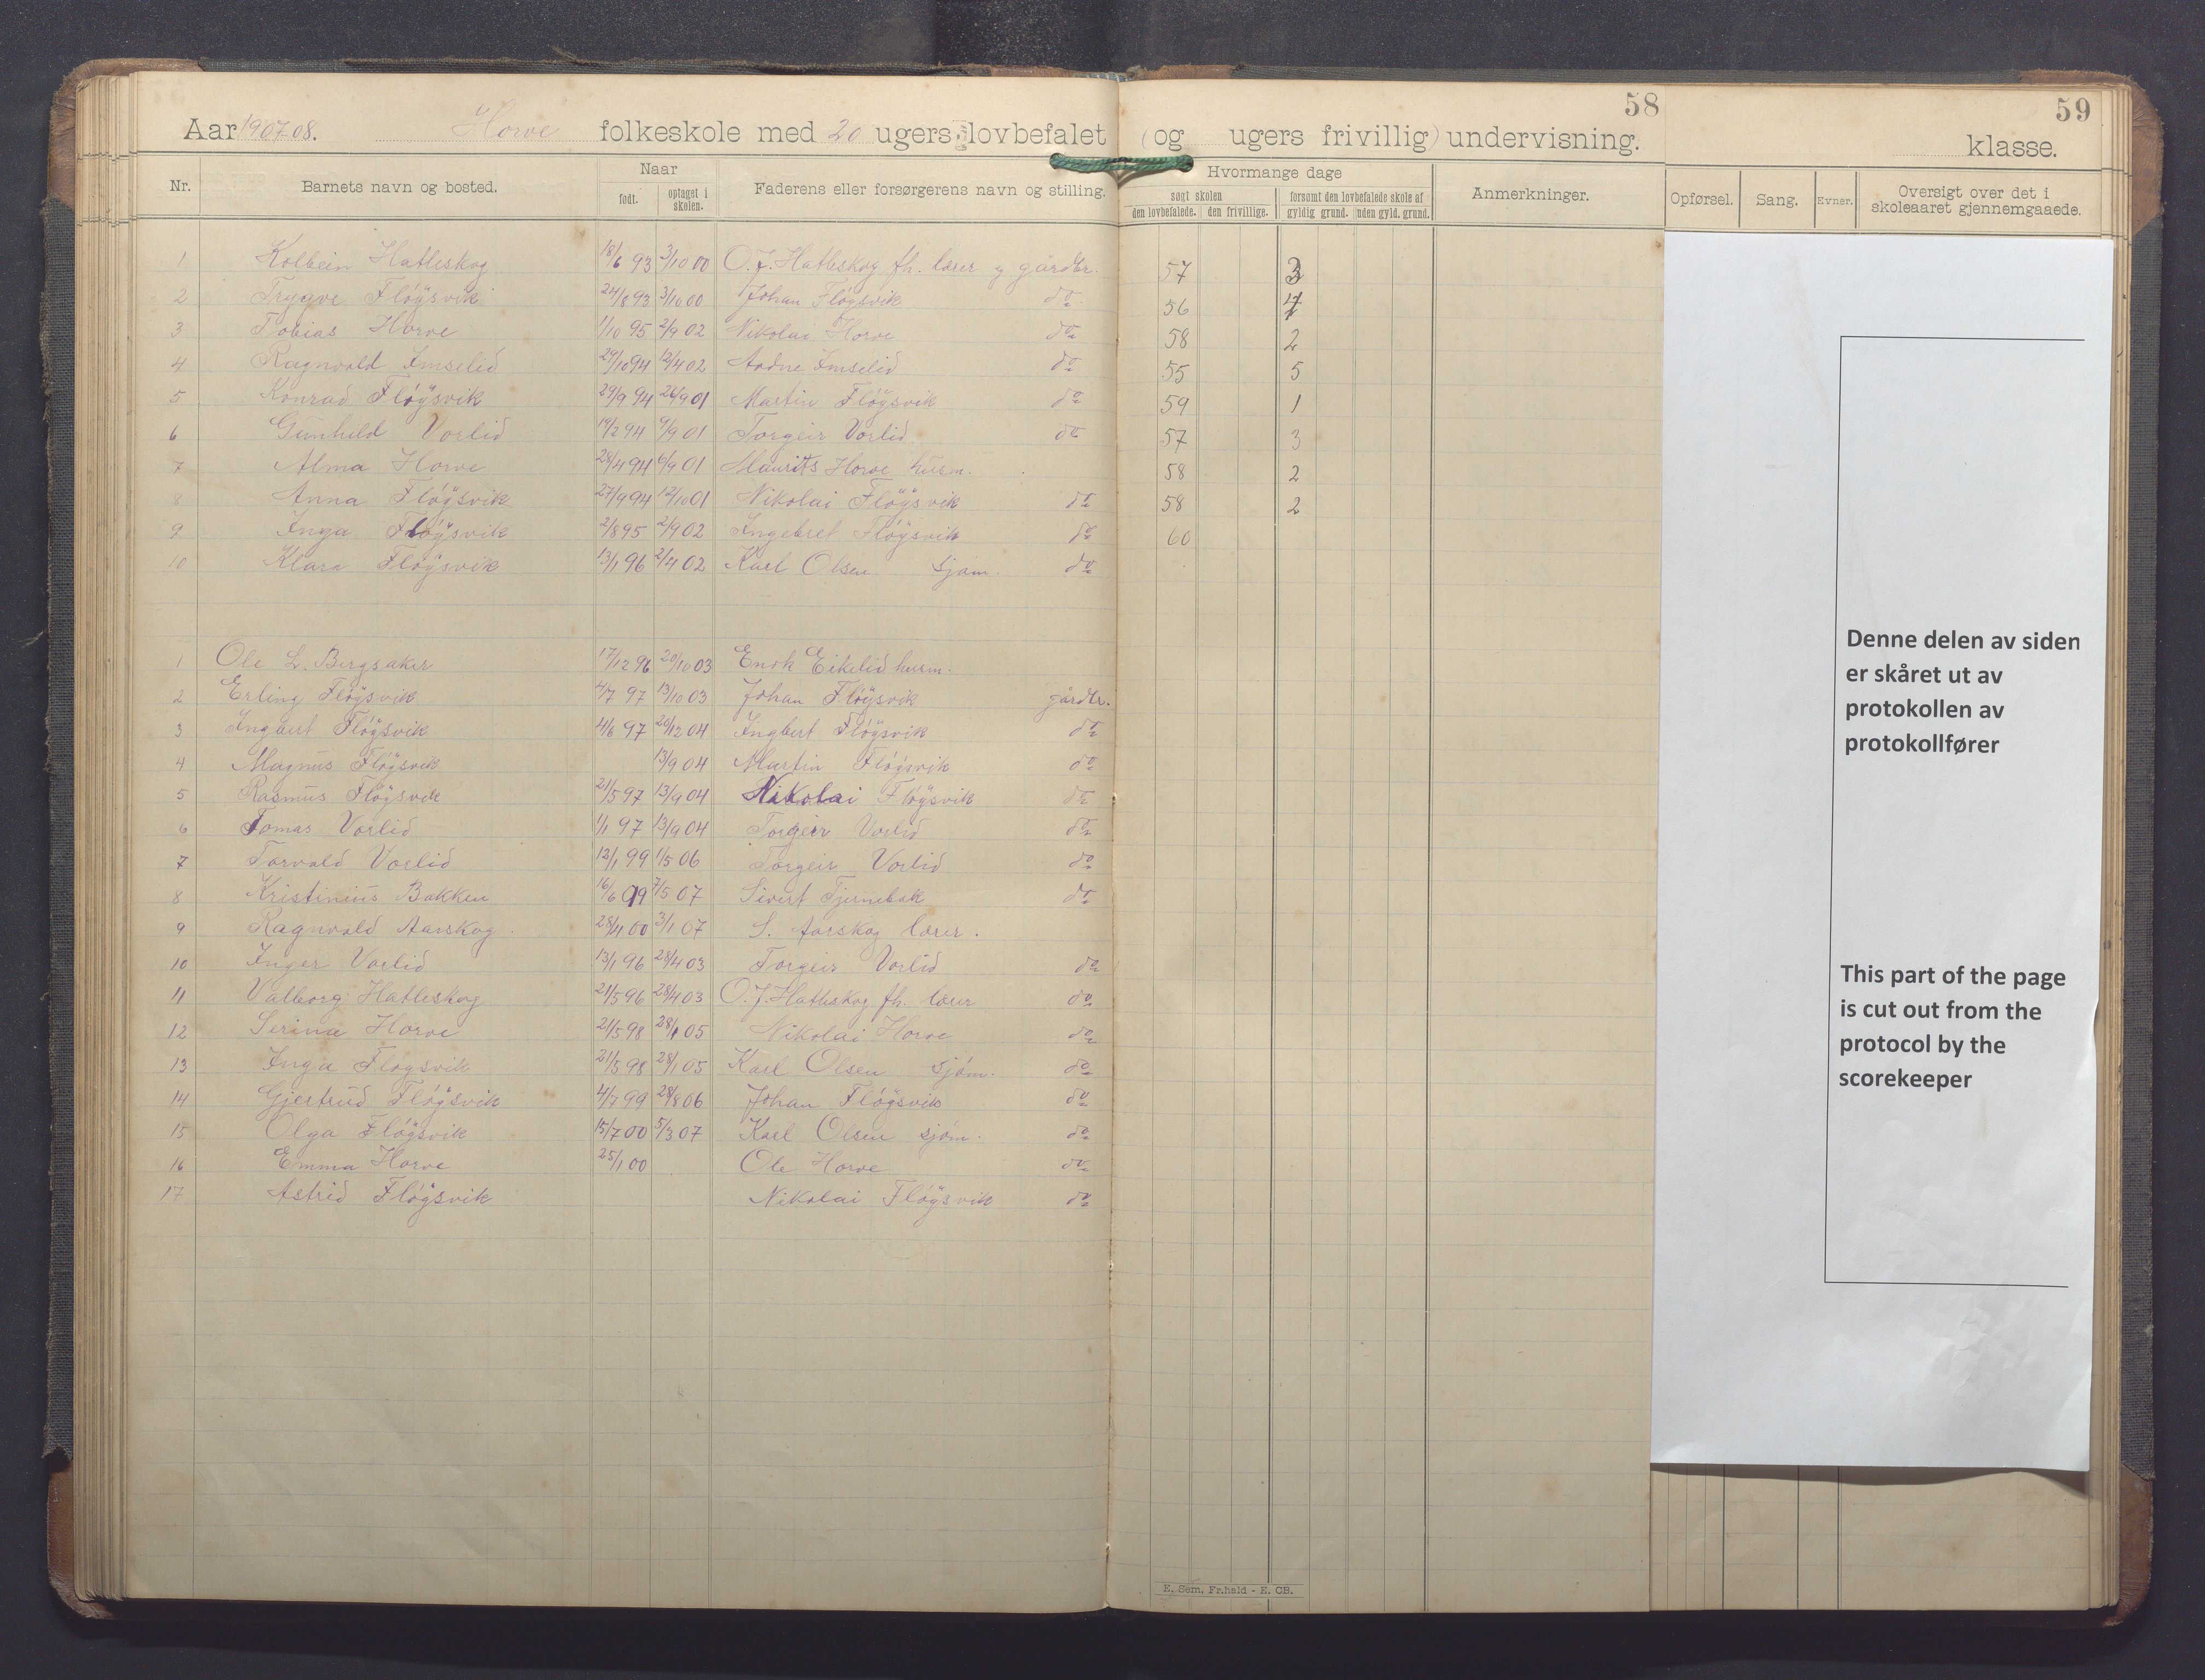 58
59
Aar 1907-08. Horve folkeskole med 20 ugers lovbefalet (og ugers frivillig) undervisning.
klasse.
Nr. Barnets navn og bosted. Naar født. optaget i skolen. Faderens eller forsørgerens navn og stilling. Hvormange dage søgt skolen den lovbefalede. den frivillige. forsømt den lovbefalede skole af gyldig grund. uden gyld. grund. Anmerkninger. Opførsel. Sang. Evner. Oversigt over det i skoleaaret gjennemgaaede.
1 Kolbein Hatleskog 18/6 93 3/10 00 O.J. Hatleskog fh. lærer g gårdbr. 57 3
2 Trygve Fløysvik 24/8 93 3/10 00 Johan Fløysvik do 56 4
3 Tobias Horve 1/10 95 2/9 02 Nikolai Horve do 58 2
4 Ragnvald Imselid 29/10 94 12/4 02 Aadne Imselid do 55 5
5 Konrad Fløysvik 29/9 94 26/9 01 Martin Fløysvik do 59 1
6 Gunhild Vorlid 19/2 94 9/9 01 Torgeir Vorlid do 57 3
7 Alma Horve 28/4 94 6/9 01 Maurits Horve husm. 58 2
8 Anna Fløysvik 27/9 94 12/10 01 Nikolai Fløysvik do 58 2
9 Inga Fløysvik 2/8 95 2/9 02 Ingebret Fløysvik do 60
10 Klara Fløysvik 13/1 96 2/4 02 Karl Olsen sjøm. do
1 Ole L. Bergsaker 17/12 96 20/10 03 Enok Eikelid husm.
2 Erling Fløysvik 4/7 97 13/10 03 Johan Fløysvik gårdbr.
3 Ingbert Fløysvik 4/6 97 20/12 04 Ingbert Fløysvik do
4 Magnus Fløysvik 13/9 04 Martin Fløysvik do
5 Rasmus Fløysvik 21/5 97 13/9 04 Nikolai Fløysvik do
6 Tomas Vorlid 1/1 97 13/9 04 Torgeir Vorlid do
7 Torvald Vorlid 12/1 99 1/5 06 Torgeir Vorlid do
8 Kristinius Bakken 16/6 99 7/5 07 Sivert Tjernebak do
9 Ragnvald Aarskog 28/11 00 3/1 07 S. Aarskog lærer.
10 Inger Vorlid 13/1 96 28/4 03 Torgeir Vorlid do
11 Valborg Hatleskog 21/5 96 28/4 03 O.J. Hatleskog fh. lærer do
12 Serina Horve 21/5 98 28/1 05 Nikolai Horve do
13 Inga Fløysvik 21/5 98 28/1 05 Karl Olsen sjøm. do
14 Gjertrud Fløysvik 4/7 99 28/8 06 Johan Fløysvik do
15 Olga Fløysvik 15/7 00 5/3 07 Karl Olsen sjøm. do
16 Emma Horve 25/1 00 Ole Horve do
17 Astrid Fløysvik Nikolai Fløysvik do
E. Sem, Fr.hald - E. CB.
Denne delen av siden
er skåret ut av
protokollen av
protokollfører
This part of the page
is cut out from the
protocol by the
scorekeeper